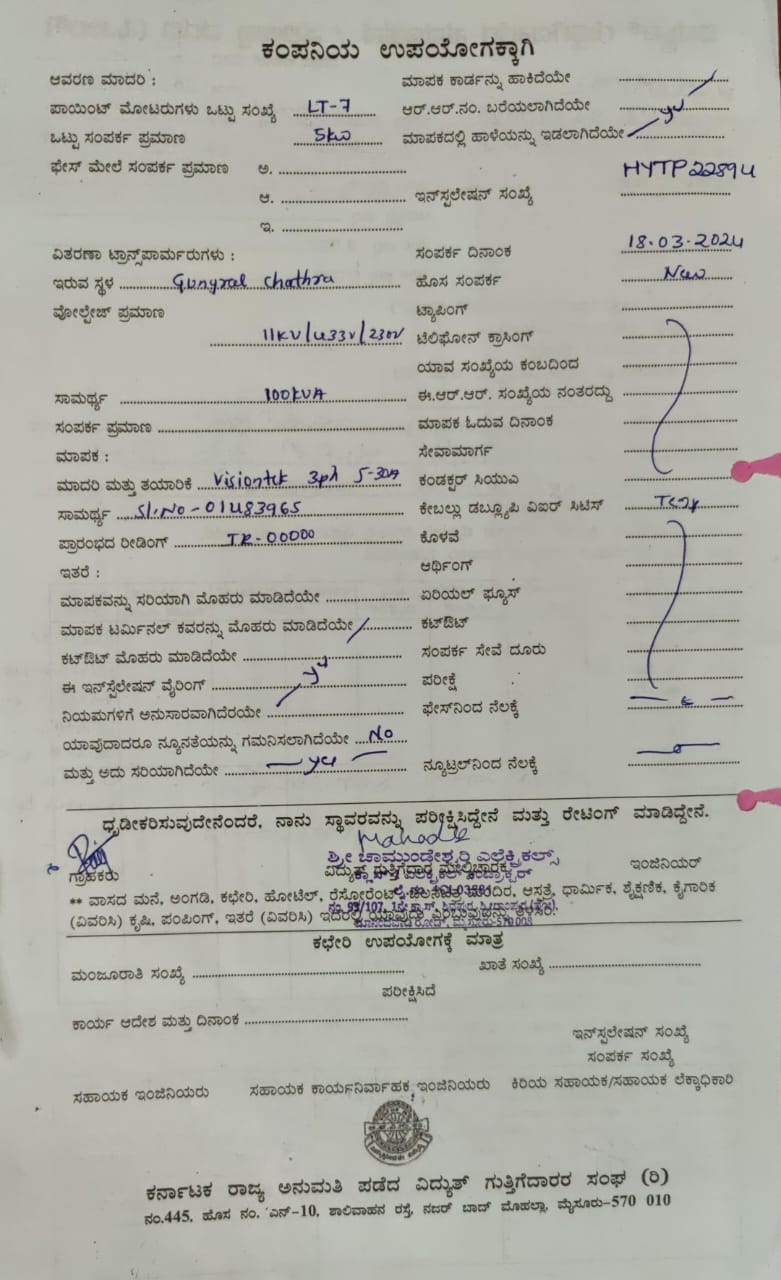 ಕಂಪನಿಯ ಉಪಯೋಗಕ್ಕಾಗಿ
ಆವರಣ ಮಾದರಿ : ಮಾಪಕ ಕಾರ್ಡನ್ನು ಹಾಕಿದೆಯೇ
ಪಾಯಿಂಟ್ ಮೋಟರುಗಳು ಒಟ್ಟು ಸಂಖ್ಯೆ LT-7 ಆರ್.ಆರ್.ನಂ. ಬರೆಯಲಾಗಿದೆಯೇ
ಒಟ್ಟು ಸಂಪರ್ಕ ಪ್ರಮಾಣ 5kw ಮಾಪಕದಲ್ಲಿ ಹಾಳೆಯನ್ನು ಇಡಲಾಗಿದೆಯೇ
ಫೇಸ್ ಮೇಲೆ ಸಂಪರ್ಕ ಪ್ರಮಾಣ ಅ.
ಆ. ಇನ್‌ಸ್ಟಲೇಷನ್ ಸಂಖ್ಯೆ HYTP22894
ಇ.
ವಿತರಣಾ ಟ್ರಾನ್ಸ್‌ಫಾರ್ಮರುಗಳು : ಸಂಪರ್ಕ ದಿನಾಂಕ 18.03.2024
ಇರುವ ಸ್ಥಳ Chathra ಹೊಸ ಸಂಪರ್ಕ New
ವೋಲ್ಟೇಜ್ ಪ್ರಮಾಣ ಟ್ಯಾಪಿಂಗ್
11KV/433V/230V ಟೆಲಿಫೋನ್ ಕ್ರಾಸಿಂಗ್
ಯಾವ ಸಂಖ್ಯೆಯ ಕಂಬದಿಂದ
ಸಾಮರ್ಥ್ಯ 100KVA ಈ.ಆರ್.ಆರ್. ಸಂಖ್ಯೆಯ ನಂತರದ್ದು
ಸಂಪರ್ಕ ಪ್ರಮಾಣ ಮಾಪಕ ಓದುವ ದಿನಾಂಕ
ಮಾಪಕ : ಸೇವಾಮಾರ್ಗ
ಮಾದರಿ ಮತ್ತು ತಯಾರಿಕೆ Visiontek 3ph 5-30A ಕಂಡಕ್ಟರ್ ಸಿಯುಎ
ಸಾಮರ್ಥ್ಯ Sl.No-01483965 ಕೇಬಲ್ಲು ಡಬ್ಲ್ಯೂಪಿ ವಿಐರ್ ಸಿಟಿಸ್
ಪ್ರಾರಂಭದ ರೀಡಿಂಗ್ IR-00000 ಕೊಳವೆ
ಇತರೆ : ಆರ್ಥಿಂಗ್
ಮಾಪಕವನ್ನು ಸರಿಯಾಗಿ ಮೊಹರು ಮಾಡಿದೆಯೇ ಏರಿಯಲ್ ಫ್ಯೂಸ್
ಮಾಪಕ ಟರ್ಮಿನಲ್ ಕವರನ್ನು ಮೊಹರು ಮಾಡಿದೆಯೇ ಕಟ್‌ಔಟ್
ಕಟ್‌ಔಟ್ ಮೊಹರು ಮಾಡಿದೆಯೇ ಸಂಪರ್ಕ ಸೇವೆ ದೂರು
ಈ ಇನ್‌ಸ್ಟೆಲೇಷನ್ ವೈರಿಂಗ್ ಪರೀಕ್ಷೆ
ನಿಯಮಗಳಿಗೆ ಅನುಸಾರವಾಗಿದೆರಯೇ ಫೇಸ್‌ನಿಂದ ನೆಲಕ್ಕೆ
ಯಾವುದಾದರೂ ನ್ಯೂನತೆಯನ್ನು ಗಮನಿಸಲಾಗಿದೆಯೇ No
ಮತ್ತು ಅದು ಸರಿಯಾಗಿದೆಯೇ ನ್ಯೂಟ್ರಲ್‌ನಿಂದ ನೆಲಕ್ಕೆ
ಧೃಡೀಕರಿಸುವುದೇನೆಂದರೆ, ನಾನು ಸ್ಥಾವರವನ್ನು ಪರೀಕ್ಷಿಸಿದ್ದೇನೆ ಮತ್ತು ರೇಟಿಂಗ್ ಮಾಡಿದ್ದೇನೆ.
ಶ್ರೀ ಚಾಮುಂಡೇಶ್ವರಿ ಎಲೆಕ್ಟ್ರಿಕಲ್ಸ್
ಗ್ರಾಹಕರು ವಿದ್ಯುತ್ ಗುತ್ತಿಗೆದಾರ ಮೇಲಿಚಾರಕ ಇಂಜಿನಿಯರ್
** ವಾಸದ ಮನೆ, ಅಂಗಡಿ, ಕಛೇರಿ, ಹೋಟೆಲ್, ರೆಸ್ಟೋರೆಂಟ್, ಚಲನಚಿತ್ರ ಮಂದಿರ, ಆಸ್ಪತ್ರೆ, ಧಾರ್ಮಿಕ, ಶೈಕ್ಷಣಿಕ, ಕೈಗಾರಿಕ
(ವಿವರಿಸಿ) ಕೃಷಿ, ಪಂಪಿಂಗ್, ಇತರೆ (ವಿವರಿಸಿ) ಇದರಲ್ಲಿ ಯಾವುದು ಎಂಬುವುದನ್ನು ತಿಳಿಸಿರಿ.
ಕಛೇರಿ ಉಪಯೋಗಕ್ಕೆ ಮಾತ್ರ
ಮಂಜೂರಾತಿ ಸಂಖ್ಯೆ ಖಾತೆ ಸಂಖ್ಯೆ
ಪರೀಕ್ಷಿಸಿದೆ
ಕಾರ್ಯ ಆದೇಶ ಮತ್ತು ದಿನಾಂಕ
ಇನ್‌ಸ್ಟಲೇಷನ್ ಸಂಖ್ಯೆ
ಸಂಪರ್ಕ ಸಂಖ್ಯೆ
ಸಹಾಯಕ ಇಂಜಿನಿಯರು ಸಹಾಯಕ ಕಾರ್ಯನಿರ್ವಾಹಕ ಇಂಜಿನಿಯರು ಕಿರಿಯ ಸಹಾಯಕ/ಸಹಾಯಕ ಲೆಕ್ಕಾಧಿಕಾರಿ
ಕರ್ನಾಟಕ ರಾಜ್ಯ ಅನುಮತಿ ಪಡೆದ ವಿದ್ಯುತ್ ಗುತ್ತಿಗೆದಾರರ ಸಂಘ (ರಿ)
ನಂ.445, ಹೊಸ ನಂ. ಎನ್-10, ಶಾಲಿವಾಹನ ರಸ್ತೆ, ನಜರ್ ಬಾದ್ ಮೊಹಲ್ಲಾ, ಮೈಸೂರು-570 010